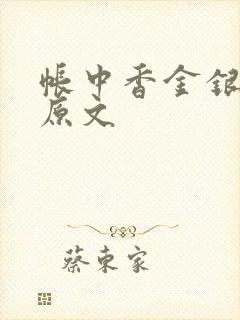 帐中香金银
原文
蔡東家